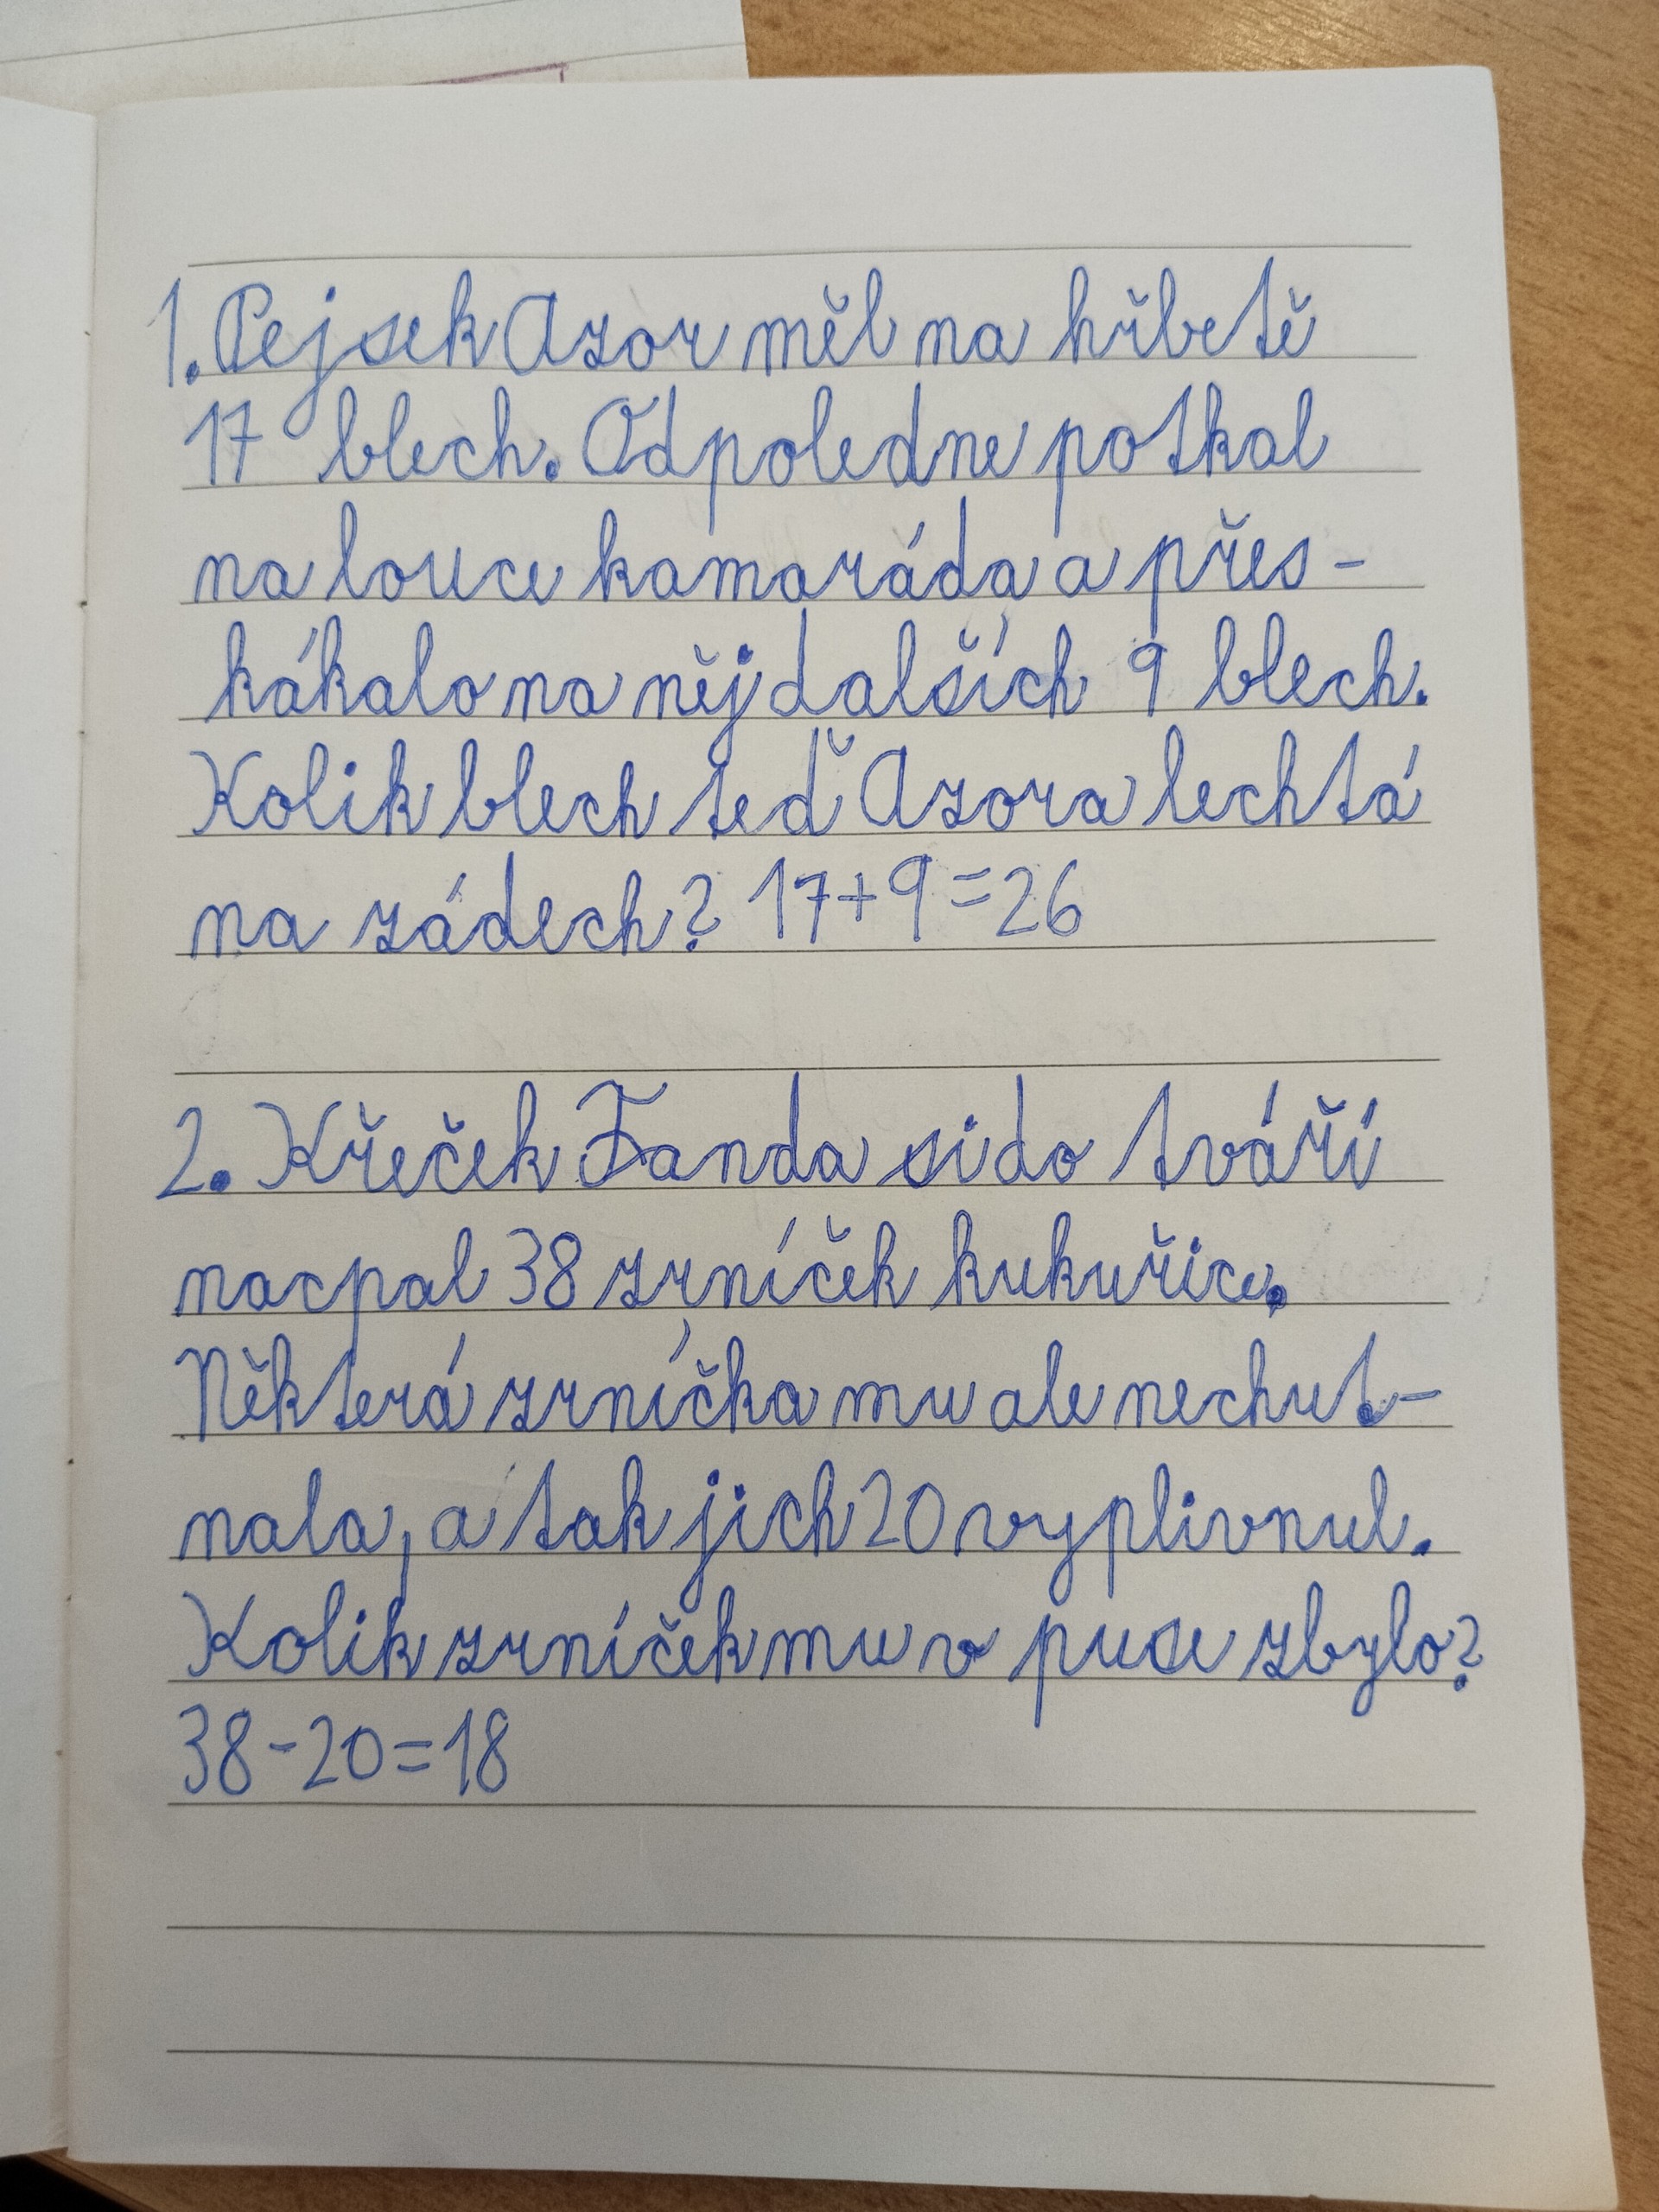 1. Pejsek Azor měl na hřbetě
17 blech. Odpoledne potkal
na louce kamaráda a přes-
kákalo na něj dalších 9 blech.
Kolik blech teď Azora lechtá
na zádech? 17+9=26
2. Křeček Fanda si do tváří
nacpal 38 zrníček kukuřice.
Některá zrníčka mu ale nechut-
nala, a tak jich 20 vyplivnul.
Kolik zrníček mu v puse zbylo?
38-20=18